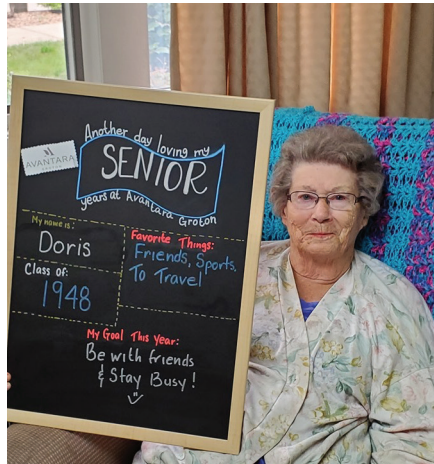 Another day loving my
SENIOR
years at Avantara Groton
AVANTARA
My name is:
Doris
Class of:
1948
Favorite Things:
Friends, Sports,
To Travel
My Goal This Year:
Be with friends
& Stay Busy!